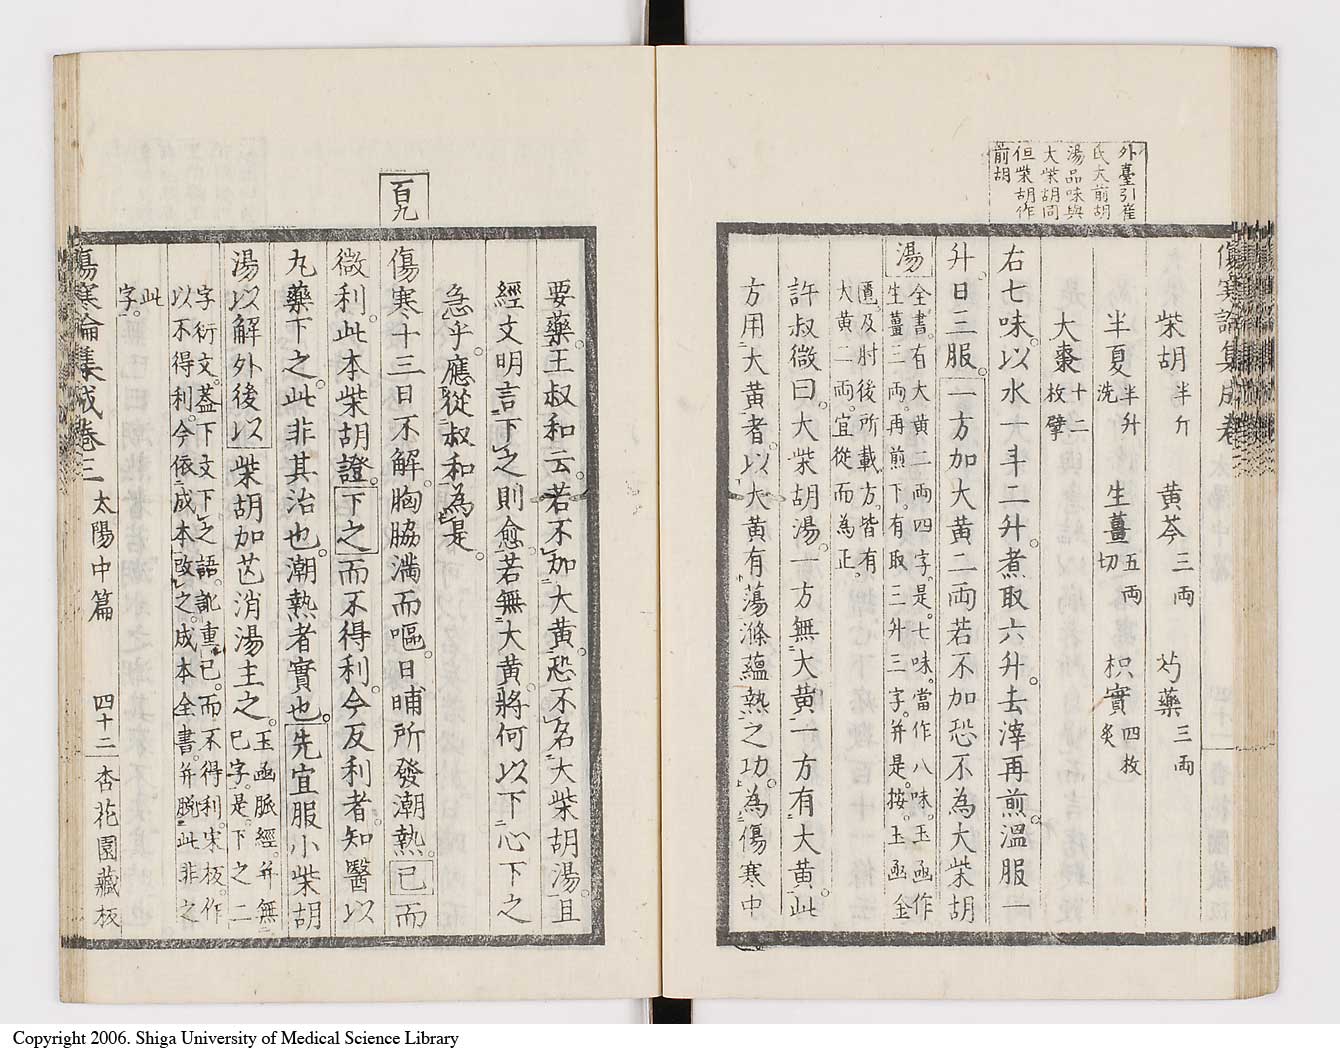 外臺引崔
氏大前胡
湯品味與
大柴胡同
但柴胡作
前胡
傷寒論集成卷
柴胡半斤 黃芩三両 芍藥三両
半夏半升洗 生薑五両切 枳實四枚炙
大棗十二枚擘
右七味。以水一斗二升。煮取六升。去滓再煎。溫服一
升。日三服。一方加大黃二両。若不加恐不為大柴胡
湯
全書。有大黃二両四字。是。七味。當作八味。玉函作
生薑三両。再煎下。有取三升三字。并是。按。玉函金
匱。及肘後所載方。皆有
大黃二両。宜從而為正。
許叔微曰。大柴胡湯。一方無大黃。一方有大黃。此
方用大黃者。以大黃有蕩滌蘊熱之功。為傷寒中
百九
要藥。王叔和云。若不加大黃。恐不名大柴胡湯。且
經文明言下之則愈。若無大黃。將何以下心下之
急乎。應從叔和為是。
傷寒十三日不解。胸脇滿而嘔。日晡所發潮熱。已而
微利。此本柴胡證。下之而不得利。今反利者。知醫以
丸藥下之。此非其治也。潮熱者實也。先宜服小柴胡
湯以解外。後以柴胡加芒消湯主之。
玉函脈經。并無
已字。是。下之二
字衍文。蓋下文下之語。訛重已。而不得利。宋板。作
以不得利。今依成本改之。成本全書。并脫此非之
此
字。
傷寒論集成卷三 太陽中篇 四十二 杏花園藏板
Copyright 2006. Shiga University of Medical Science Library